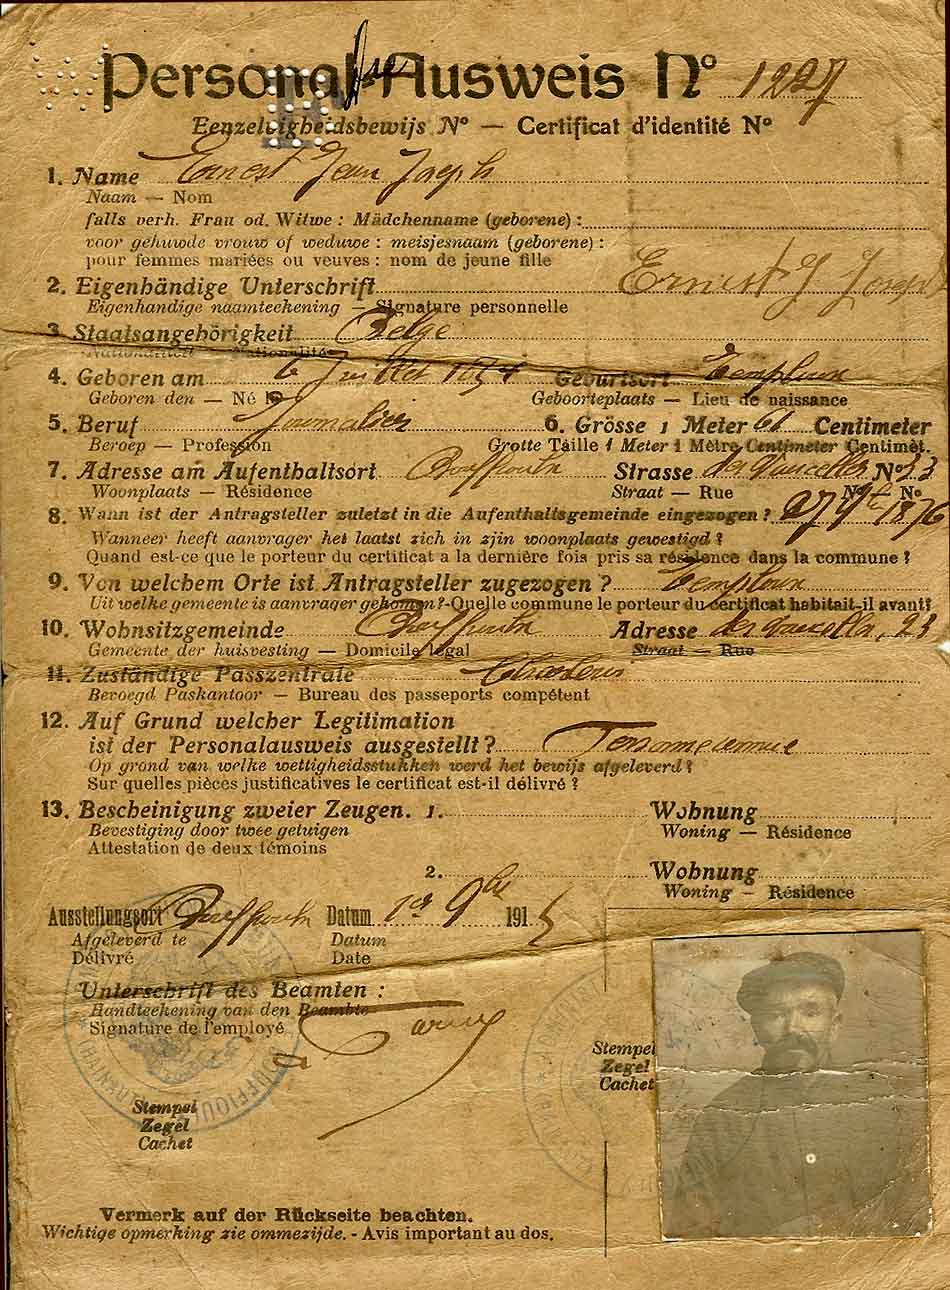 Personal-Ausweis Nº 1227
Eenzelvigheidsbewijs Nº — Certificat d'identité Nº
1. Name Ernest Jean Joseph
Naam — Nom
falls verh. Frau od. Witwe : Mädchenname (geborene) :
voor gehuwde vrouw of weduwe : meisjesnaam (geborene) :
pour femmes mariées ou veuves : nom de jeune fille
2. Eigenhändige Unterschrift Ernest J Joseph
Eigenhandige naamteekening — Signature personnelle
3 Staatsangehörigkeit Belge
Nationaliteit — Nationalité
4. Geboren am 6 Juillet Geburtsort Temploux
Geboren den — Né le Geboorteplaats — Lieu de naissance
5. Beruf Journalier 6. Grösse 1 Meter 61 Centimeter
Beroep — Profession Grotte Taille 1 Meter 1 Mètre Centimeter Centimèt.
7. Adresse am Aufenthaltsort Bouffioulx Strasse des Nº 23
Woonplaats — Résidence Straat — Rue Nº Nº
8. Wann ist der Antragsteller zuletzt in die Aufenthaltsgemeinde eingezogen ? 27 9bre 1876
Wanneer heeft aanvrager het laatst zich in zijn woonplaats gewestigd ?
Quand est-ce que le porteur du certificat a la dernière fois pris sa résidence dans la commune ?
9. Von welchem Orte ist Antragsteller zugezogen ? Temploux
Uit welke gemeente is aanvrager gekomen? - Quelle commune le porteur du certificat habitait-il avant?
10. Wohnsitzgemeinde Bouffioulx Adresse des 23
Gemeente der huisvesting — Domicile légal Straat — Rue
11. Zuständige Passzentrale Charleroi
Bevoegd Paskantoor — Bureau des passeports compétent
12. Auf Grund welcher Legitimation
ist der Personalausweis ausgestellt ?
Op grond van welke wettigheidsstukken werd het bewijs afgeleverd ?
Sur quelles pièces justificatives le certificat est-il délivré ?
13. Bescheinigung zweier Zeugen. 1. Wohnung
Bevestiging door twee getuigen Woning — Résidence
Attestation de deux témoins
2. Wohnung
Woning — Résidence
Ausstellungsort Bouffioulx Datum 9bre 1915
Afgeleverd te Datum
Délivré Date
Unterschrift des Beamten :
Handteekening van den Beambte
Signature de l'employé
Stempel
Zegel
Cachet
Stempel
Zegel
Cachet
Vermerk auf der Rückseite beachten.
Wichtige opmerking zie ommezijde. - Avis important au dos.